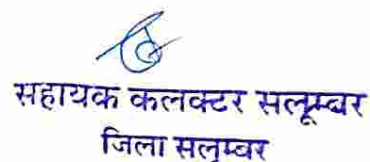 सहायक कलक्टर सलूम्बर
जिला सलुम्बर